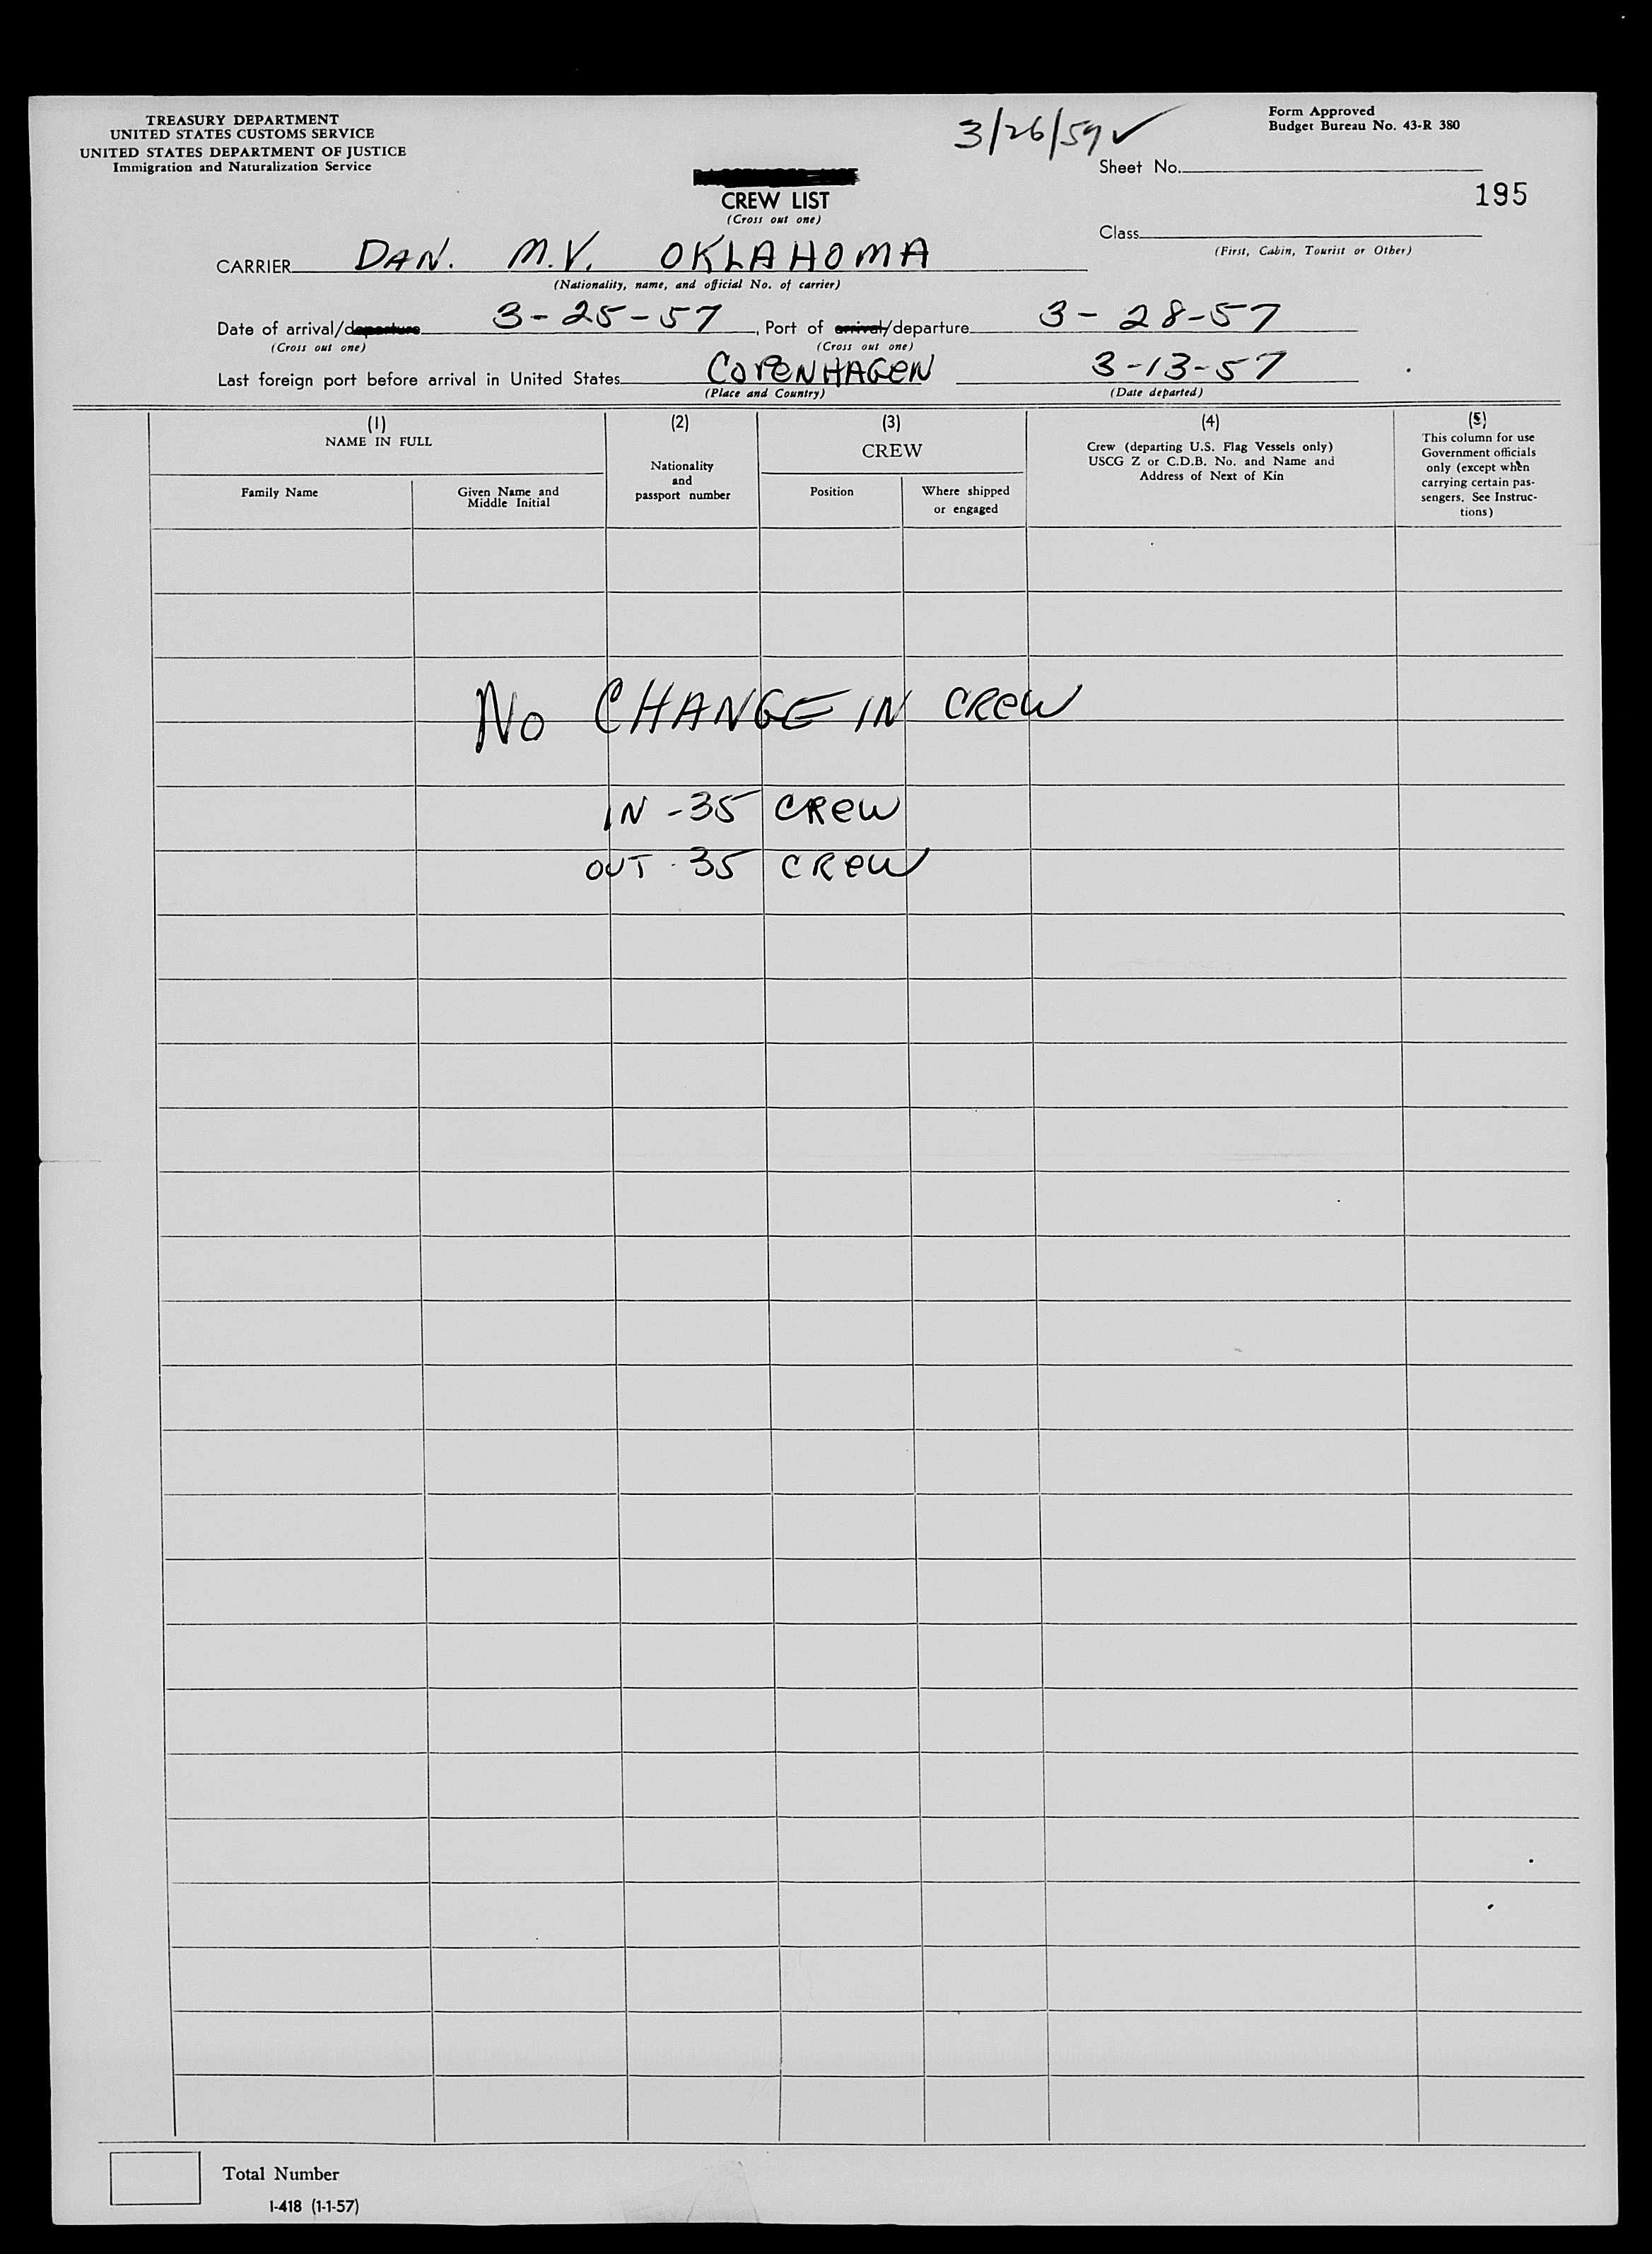 TREASURY DEPARTMENT
UNITED STATES CUSTOMS SERVICE
UNITED STATES DEPARTMENT OF JUSTICE
Immigration and Naturalization Service
3/26/59 ✓
Form Approved
Budget Bureau No. 43-R 380
Sheet No.
195
CREW LIST
(Cross out one)
Class
(First, Cabin, Tourist or Other)
CARRIER DAN. M.V. OKLAHOMA
(Nationality, name, and official No. of carrier)
Date of arrival/departure 3-25-57, Port of arrival/departure 3-28-57
(Cross out one) (Cross out one)
Last foreign port before arrival in United States COPENHAGEN 3-13-57
(Place and Country) (Date departed)
(1)
NAME IN FULL
Family Name
Given Name and
Middle Initial
(2)
Nationality
and
passport number
(3)
CREW
Position
Where shipped
or engaged
(4)
Crew (departing U.S. Flag Vessels only)
USCG Z or C.D.B. No. and Name and
Address of Next of Kin
(5)
This column for use
Government officials
only (except when
carrying certain pas-
sengers. See Instruc-
tions)
NO CHANGE IN CREW
IN - 35 CREW
OUT - 35 CREW
Total Number
I-418 (1-1-57)